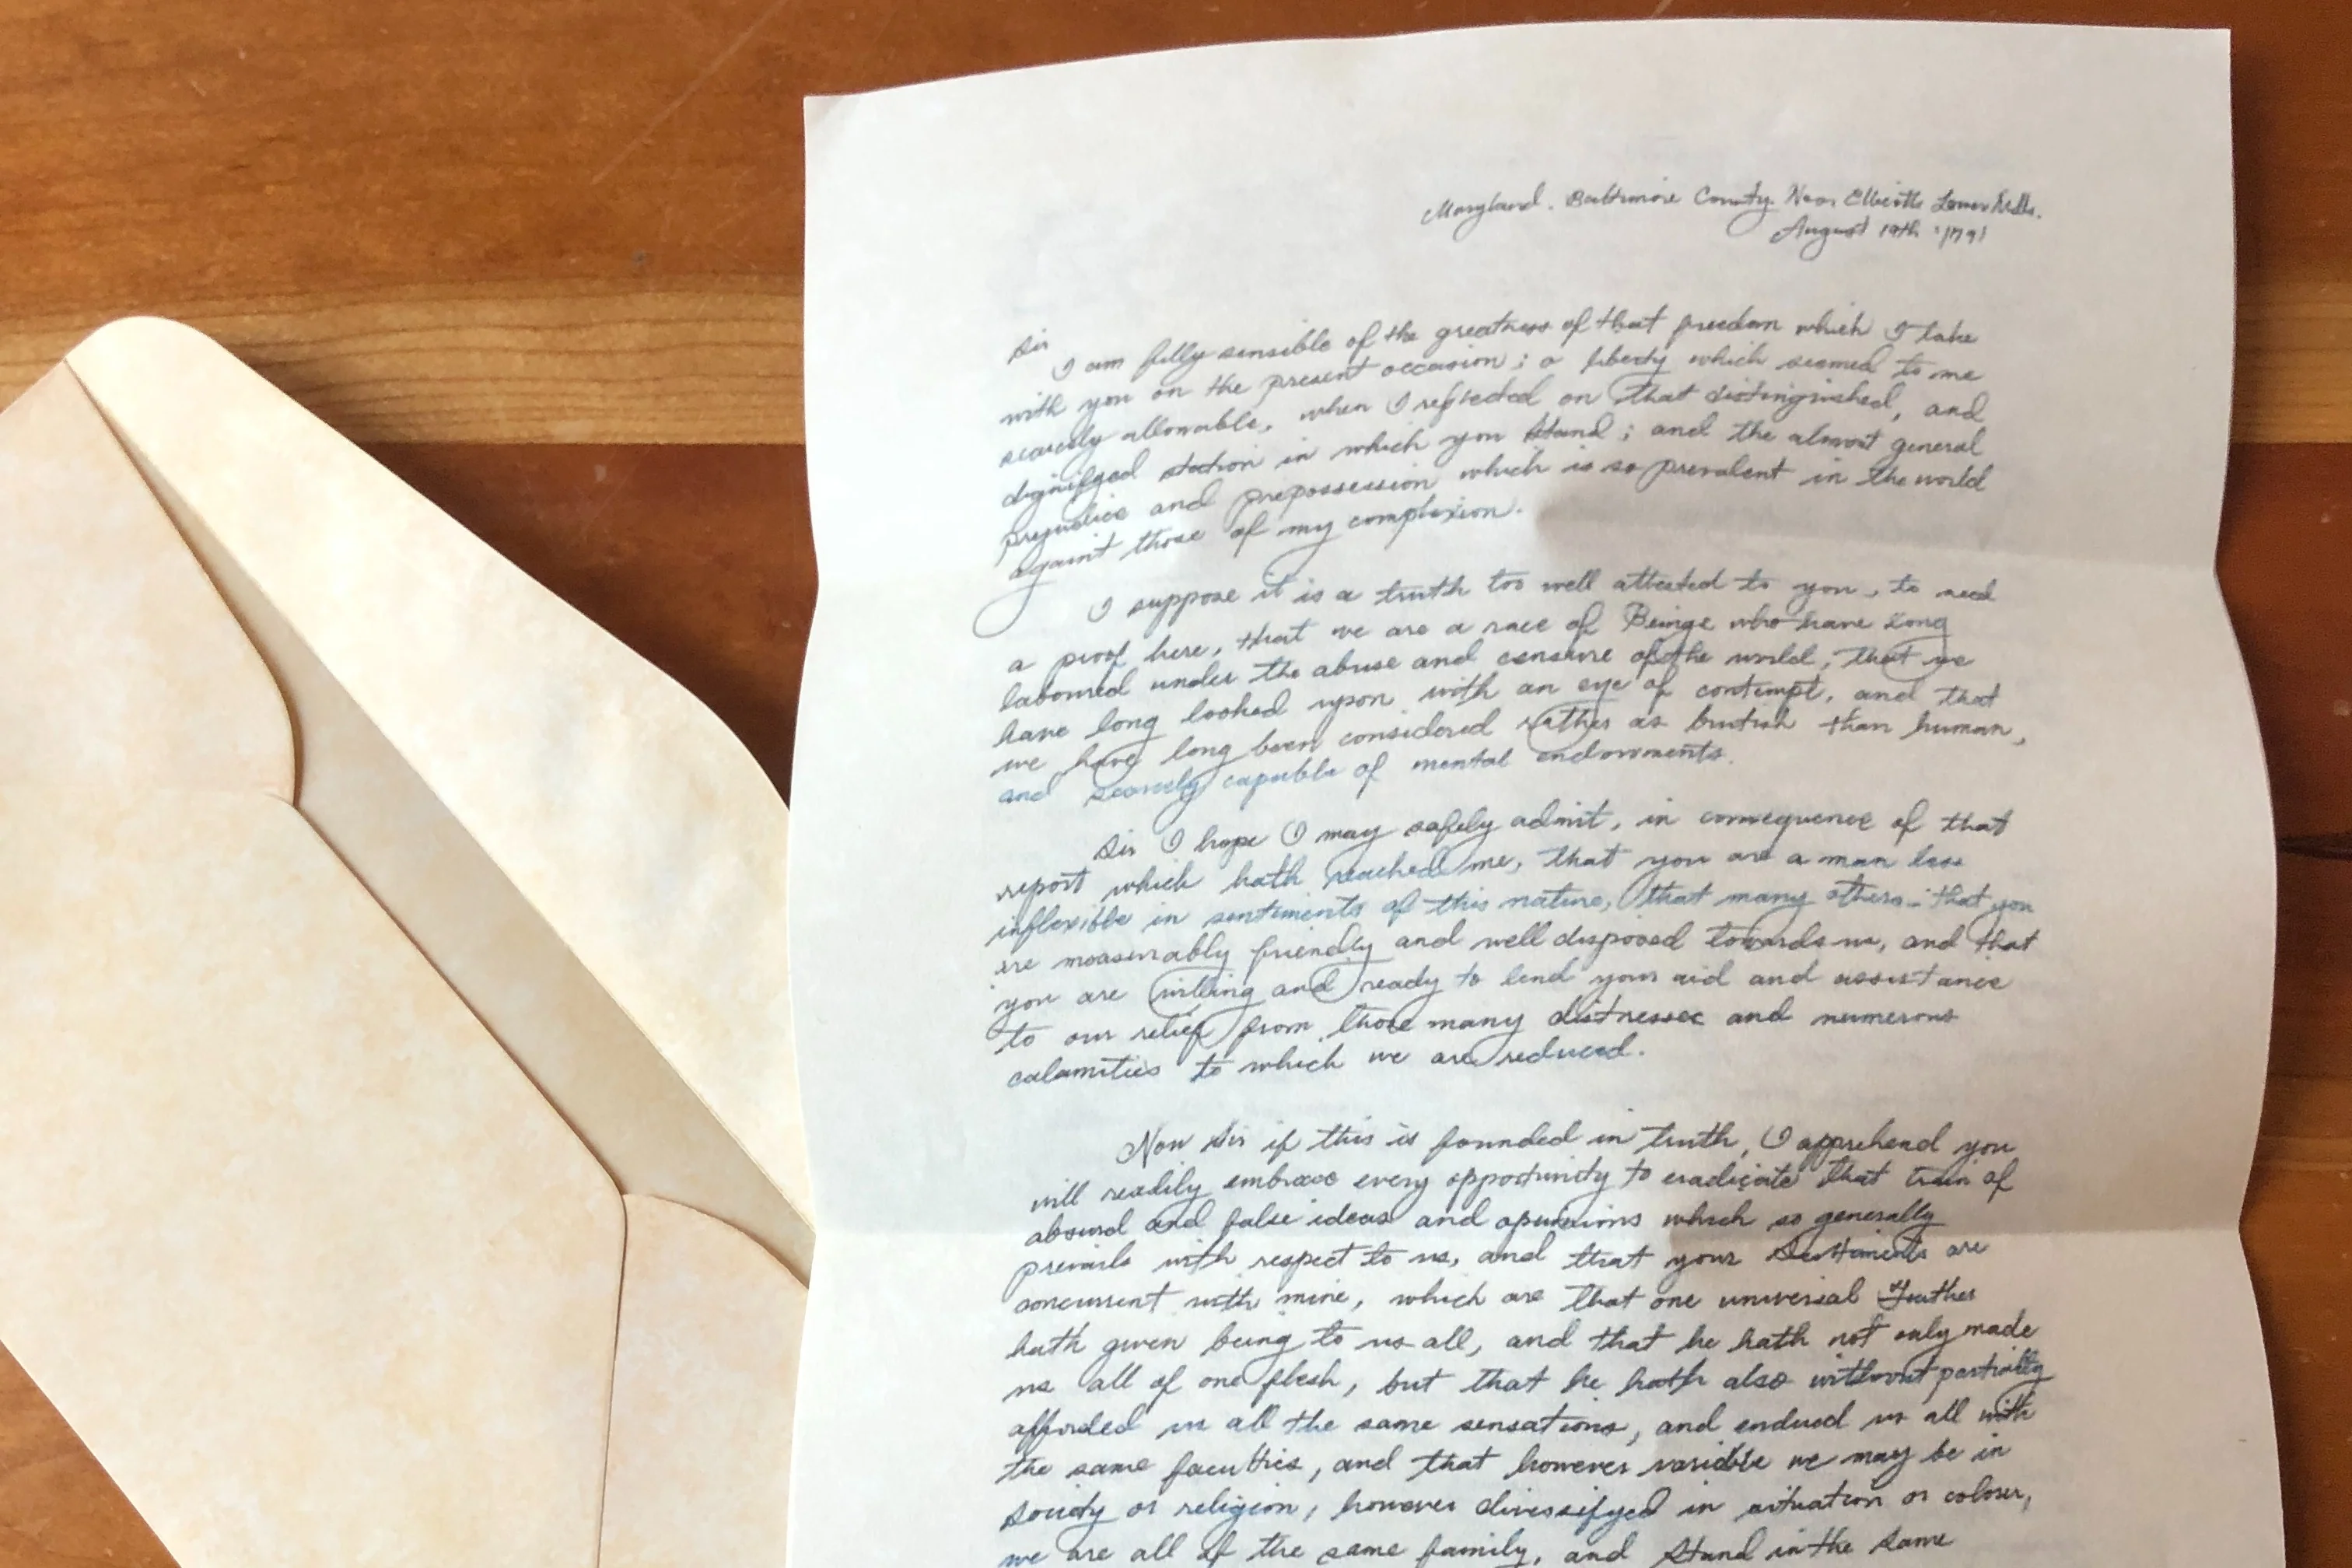 Maryland. Baltimore County. Near Ellicotts Lower Mills.
August 19th 1791
Sir
I am fully sensible of the greatness of that freedom which I take
with you on the present occasion; a liberty which seemed to me
scarcely allowable, when I reflected on that distinguished, and
dignifyed station in which you Stand; and the almost general
prejudice and prepossession which is so prevalent in the world
against those of my complexion.
I suppose it is a truth too well attested to you, to need
a proof here, that we are a race of Beings who have long
laboured under the abuse and censure of the world, that we
have long looked upon with an eye of contempt, and that
we have long been considered rather as brutish than human,
and scarcely capable of mental endowments.
Sir I hope I may safely admit, in consequence of that
report which hath reached me, that you are a man less
inflexible in sentiments of this nature, that many others.. that you
are measurably friendly and well disposed towards us, and that
you are willing and ready to lend your aid and assistance
to our relief from those many distresses and numerous
calamities to which we are reduced.
Now Sir if this is founded in truth, I apprehend you
will readily embrace every opportunity to eradicate that train of
absurd and false ideas and opinions which so generally
prevails with respect to us, and that your Sentiments are
concurrent with mine, which are that one universal Father
hath given being to us all, and that he hath not only made
us all of one flesh, but that he hath also without partiality
afforded us all the same sensations, and endued us all with
the same faculties, and that however variable we may be in
Society or religion, however diversifyed in situation or colour,
we are all of the same family, and Stand in the same